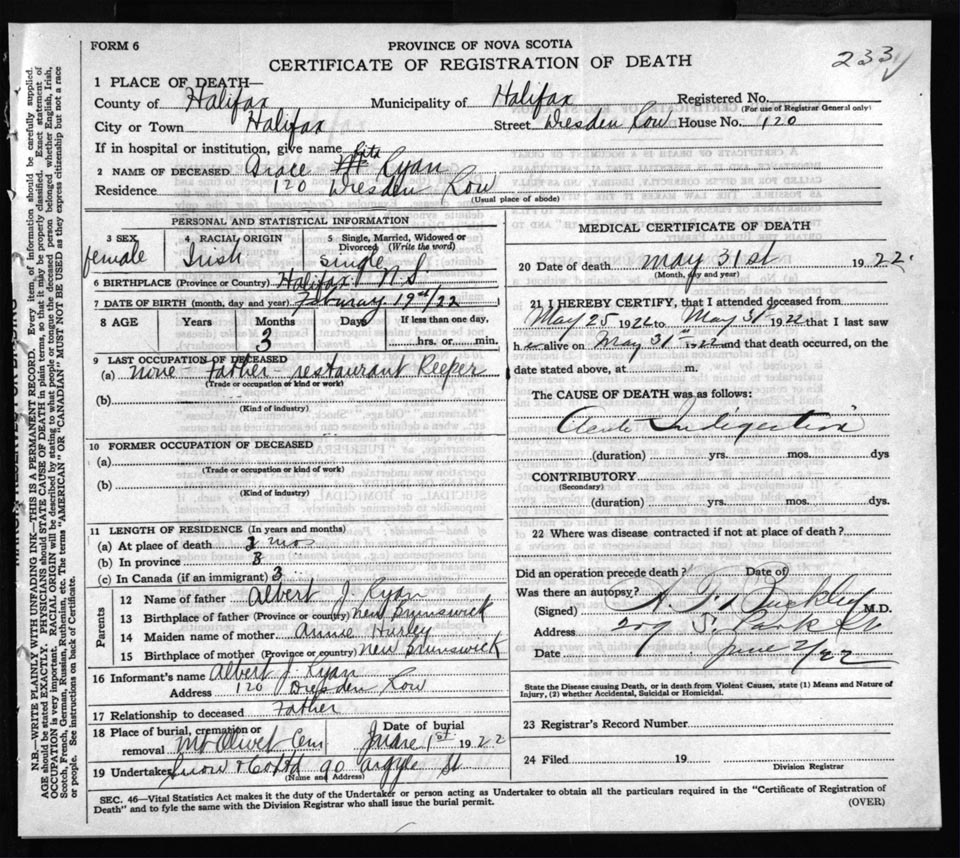 FORM 6
PROVINCE OF NOVA SCOTIA
CERTIFICATE OF REGISTRATION OF DEATH
233
1 PLACE OF DEATH—
County of Halifax Municipality of Halifax Registered No.
(For use of Registrar General only)
City or Town Halifax Street Dresden Row House No. 120
If in hospital or institution, give name
Rita
2 NAME OF DECEASED Grace Ryan
Residence 120 Dresden Row
(Usual place of abode)
PERSONAL AND STATISTICAL INFORMATION
3 SEX female
4 RACIAL ORIGIN Irish
5 Single, Married, Widowed or Divorced (Write the word) Single
6 BIRTHPLACE (Province or Country) Halifax N.S
7 DATE OF BIRTH (month, day and year) February 19th/22
8 AGE Years Months Days If less than one day,
3 hrs. or min.
9 LAST OCCUPATION OF DECEASED
(a) none - Father - restaurant Keeper
(Trade or occupation or kind or work)
(b)
(Kind of industry)
10 FORMER OCCUPATION OF DECEASED
(a)
(Trade or occupation or kind of work)
(b)
(Kind of industry)
11 LENGTH OF RESIDENCE (In years and months)
(a) At place of death 3 mos
(b) In province 3
(c) In Canada (if an immigrant) 3
Parents
12 Name of father Albert J. Ryan
13 Birthplace of father (Province or country) New Brunswick
14 Maiden name of mother Annie Hurley
15 Birthplace of mother (Province or country) New Brunswick
16 Informant's name Albert J. Ryan
Address 120 Dresden Row
17 Relationship to deceased Father
18 Place of burial, cremation or removal Mt Olivet Cem
Date of burial June 1st 1922
19 Undertaker Snow & Co Ltd 90 Argyle St
(Name and Address)
MEDICAL CERTIFICATE OF DEATH
20 Date of death May 31st 1922.
(Month, day and year)
21 I HEREBY CERTIFY, that I attended deceased from
May 25 1922 to May 31 1922 that I last saw
h er alive on May 31st 1922 and that death occurred, on the
date stated above, at m.
The CAUSE OF DEATH was as follows:
Acute Indigestion
(duration) yrs. mos. dys
CONTRIBUTORY
(Secondary)
(duration) yrs. mos. dys.
22 Where was disease contracted if not at place of death?
Did an operation precede death? Date of
Was there an autopsy?
(Signed) Buckley M.D.
Address 209 S. Park St.
Date June 2/22
State the Disease causing Death, or in death from Violent Causes, state (1) Means and Nature of
Injury, (2) whether Accidental, Suicidal or Homicidal.
23 Registrar's Record Number
24 Filed 19
Division Registrar
SEC. 46—Vital Statistics Act makes it the duty of the Undertaker or person acting as Undertaker to obtain all the particulars required in the "Certificate of Registration of
Death" and to fyle the same with the Division Registrar who shall issue the burial permit.
(OVER)
N.B.—WRITE PLAINLY WITH UNFADING INK—THIS IS A PERMANENT RECORD. Every item of information should be carefully supplied.
AGE should be stated EXACTLY. PHYSICIANS should STATE CAUSE OF DEATH in plain terms, so that it may be properly classified. Exact statement of
OCCUPATION is very important. RACIAL ORIGIN will be described by stating to what people or tongue the deceased person belonged whether English, Irish,
Scotch, French, German, Russian, Ruthenian, etc. The terms "AMERICAN" OR "CANADIAN" MUST NOT BE USED as they express citizenship but not a race
or people. See instructions on back of Certificate.